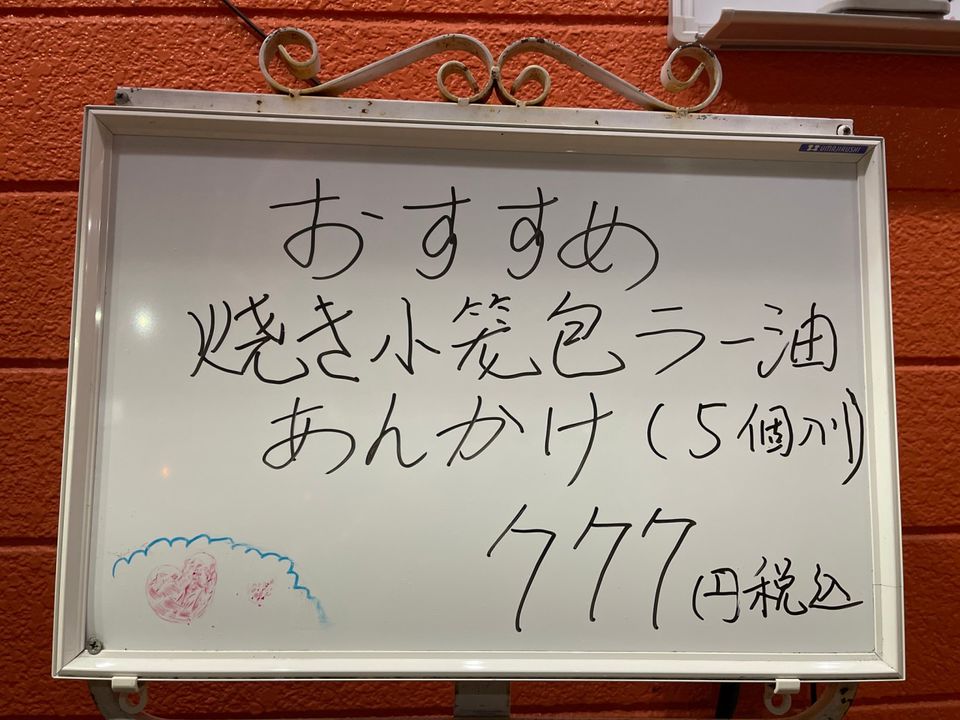 おすすめ
焼き小籠包ラー油
あんかけ(5個入り)
777円税込
UMAJIRUSHI